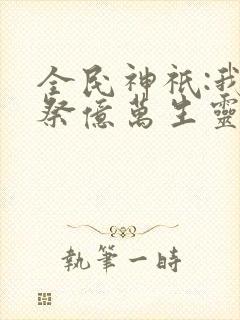 全民神祇:我
祭億萬生靈
執筆一時